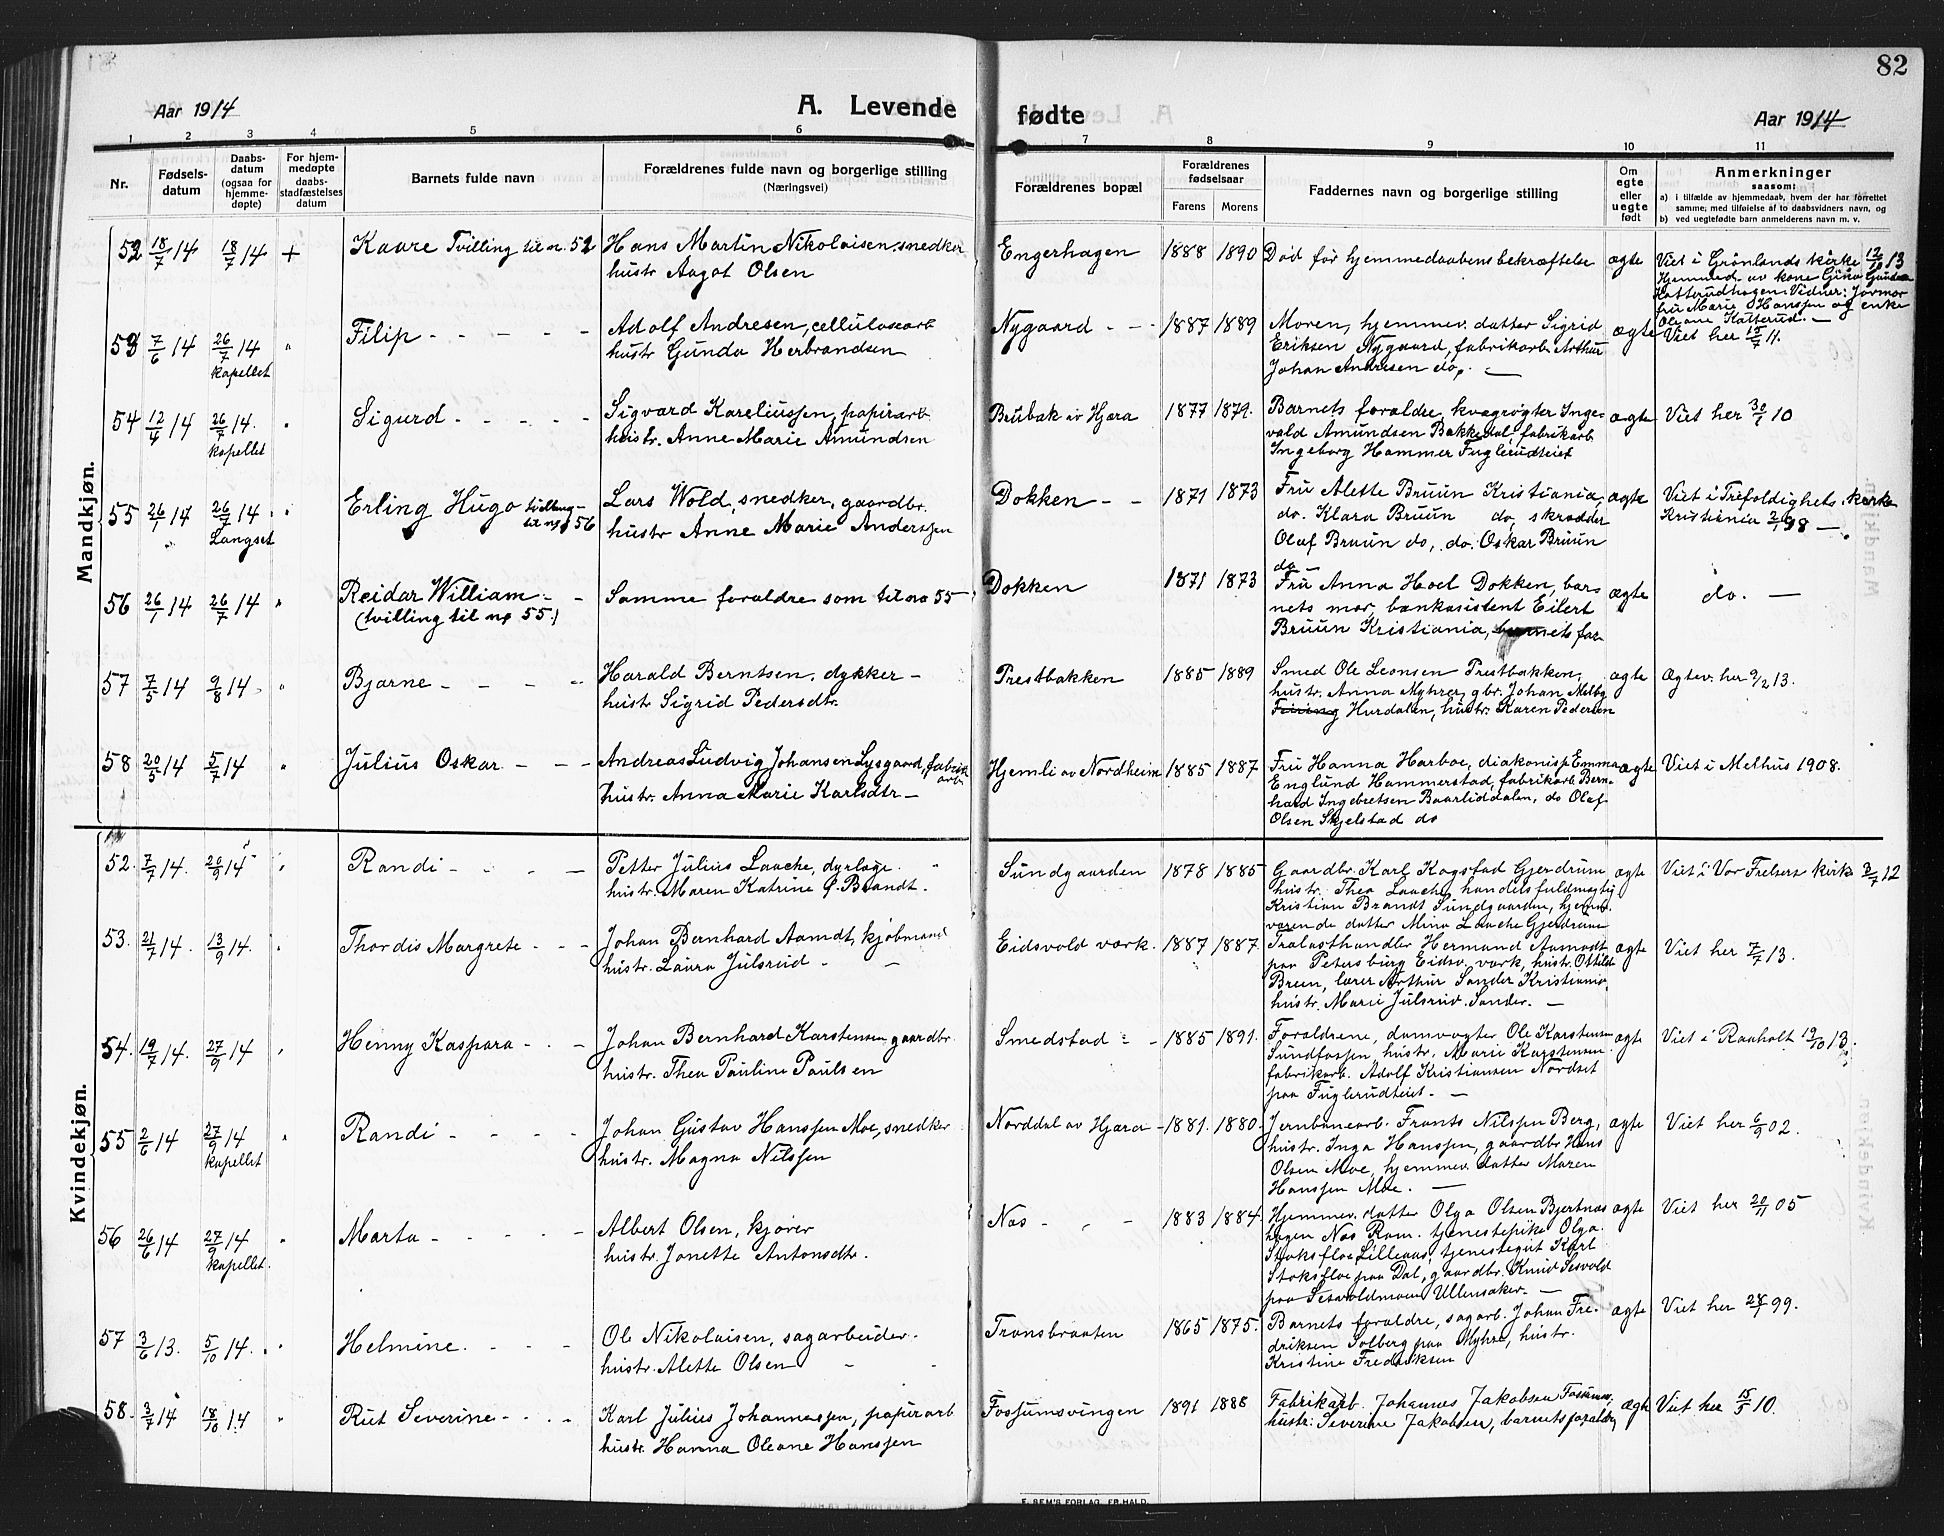 82
Aar 1914
A. Levende fødte
Aar 1914
1 2 3 4 5 6 7 8 9 10 11
Nr.
Fødsels-
datum
Daabs-
datum
(ogsaa for
hjemme-
døpte)
For hjem-
medøpte
daabs-
stadfæstelses
datum
Barnets fulde navn
Forældrenes fulde navn og borgerlige stilling
(Næringsvei)
Forældrenes bopæl
Forældrenes
fødselsaar
Farens Morens
Faddernes navn og borgerlige stilling
Om
egte
eller
uegte
født
Anmerkninger
saasom:
a) i tilfælde av hjemmedaab, hvem der har forrettet
samme; med tilføielse af to daabsvidners navn, og
b) ved uegtefødte barn anmelderens navn m. v.
Mandkjøn.
52 18/7 14 18/7 14 + Kaare Tvilling til nr. 51
Hans Martin Nikolaisen, snedker
hustr Aagot Olsen
Engerhagen 1888 1890
Død før hjemmedaabens bekræftelse
ægte
Viet i Grönlands kirke 12/10 13
Hjemmed. av kone Gina
Katterudhagen. Vidner: Jormor
fru Marie Hanssen og enke
Oleane Katterud. —
53 7/6 14 26/7 14 kapellet " Filip - - - -
Adolf Andresen, cellulosearb
hustr Gunda Herbrandsen
Nygaard - - 1887 1889
Moren, hjemmev. datter Sigrid
Eriksen Nygaard, fabrikarb. Arthur
Johan Andresen do. —
ægte
Viet her 15/7 11.
54 12/4 14 26/7 14. kapellet " Sigurd - - - -
Sigvard Kareliussen, papirarb
hustr. Anne Marie Amundsen
Brubak av Hjæra 1877 1879.
Barnets foraldre, kvægrøgter Inge-
vald Amundsen Bakkedal, fabrikarb
Ingeborg Hammer Fuglerudteiet
ægte
Viet her 30/1 10
55 26/1 14 26/7 14 Langset " Erling Hugo tvilling
til no 56
Lars Wold, snedker, gaardbr.
hustr Anne Marie Anderssen
Dokken - - 1871 1873
Fru Alette Bruun Kristiania,
do. Klara Bruun do, skrædder
Olaf Bruun do, do. Oskar Bruun
do —
ægte
Viet i Trefoldighets kirke
Kristiania 98 —.
56 26/1 14 26/7 14 " Reidar William - -
(tvilling til no 55.)
Samme foraldre som til no 55
Dokken 1871 1873
Fru Anna Hoel Dokken, bar-
nets mor, bankasistent Eilert
Bruun Kristiania, barnets far
ægte
do. —
57 7/5 14 9/8 14 " Bjarne - - - -
Harald Berntsen, dykker -
hustr Sigrid Pedersdtr.
Prestbakken 1885 1889
Smed Ole Leonsen Prestbakken,
hustr. Anna Myhrer, gbr. Johan Melby
Feiring Hurdalen, hustr. Karen Pedersen
ægte
Ægtev. her 9/2 13.
58 20/5 14 5/7 14 " Julius Oskar - - -
Andreas Ludvig Johansen Lysgaard, fabrik
arb
hustr. Anna Marie Karlsdtr -
Hjemli av Nordheim 1885 1887
Fru Hanna Harboe, diakonisse Emma
Englund Hammerstad, fabrikarb Bern-
hard Ingebretsen Baarliddalen, do Olaf
Olsen Skjelstad do
ægte
Viet i Melhus 1908.
Kvindekjøn.
52. 7/7 14. 20/9 14 " Randi - - - -
Petter Julius Laache, dyrlæge.
hustr. Maren Katrine f. Brandt.
Sundgaarden 1878 1885
Gaardbr. Karl Kogstad Gjerdrum
hustr. Thea Laache, handelsfuldmægtig
Kristian Brandt Sundgaarden, hjemme-
værende datter Mina Laache Gjerdrum
ægte
Viet i Vor Frelsers kirke 2/7 12
53. 21/7 14. 13/9 14. " Thordis Margrete - - -
Johan Bernhard Aamdt, kjøbmand
hustr. Laura Julsrud - -
Eidsvold værk. 1887 1887.
Trælasthandler Hermand Aamodt
paa Petersburg Eidsv. værk, hustr. Ottilde
Breen, lærer Arthur Sander Kristiania,
hustr. Marie Julsrud Sander. —
ægte
Viet her 7/7 13.
54. 19/7 14. 27/9 14 " Henny Kaspara - - -
Johan Bernhard Karstensen gaardbr.
hustr. Thea Pauline Paulsen
Smedstad - - 1885 1891.
Foraldrene, damvogter Ole Karstensen
Sundfossen, hustr. Marie Karstensen
fabrikarb. Adolf Kristiansen Nordset
paa Fuglerudteiet. —
ægte
Viet i Raaholt 19/10 13.
55 2/6 14 27/9 14 kapellet " Randi - - - -
Johan Gustav Hanssen Moe, snedker
hustr. Magna Nilssen
Norddal av Hjæra - 1881. 1880.
Jernbanearb. Frants Nilssen Berg,
hustr. Inga Hanssen, gaardbr. Hans
Olsen Moe, hjemmev. datter Maren
Hanssen Moe. —
ægte
Viet her 6/9 02.
56 26/6 14 27/9 14 kapellet. " Marta - - - -
Albert Olsen, kjører
hustr. Jonette Antonsdtr.
Næs - - - 1883 1884
Hjemmev. datter Olga Olsen Bjertnæs
hagen Næs Rom. tjenestepike Olga
Stoksfloe Lilleaas, tjenestegut Karl
Stoksfloe paa Dal, gaardbr. Knud Sesvold
paa Sesvoldmoen Ullensaker. —
ægte
Viet her 20/11 05
57 3/6 13. 5/10 14. " Helmine. - - -
Ole Nikolaisen, sagarbeider.
hustr. Alette Olsen - -
Transbraaten 1865 1875.
Barnets foraldre, sagarb. Johan Fre-
driksen Solberg paa Myhre, hustr.
Kristine Fredriksen
ægte
Viet her 28/1 99.
58. 3/7 14 18/10 14 " Rut Severine - - - -
Karl Julius Johannessen, papirarb
hustr. Hanna Oleane Hanssen
Fossumsvingen 1891 1888
Fabrikarb. Johannes Jakobsen
hustr: Severine Jakobsen, barnets foraldre
ægte
Viet her 15/5 10.
E. SEM'S FORLAG, FR.HALD.